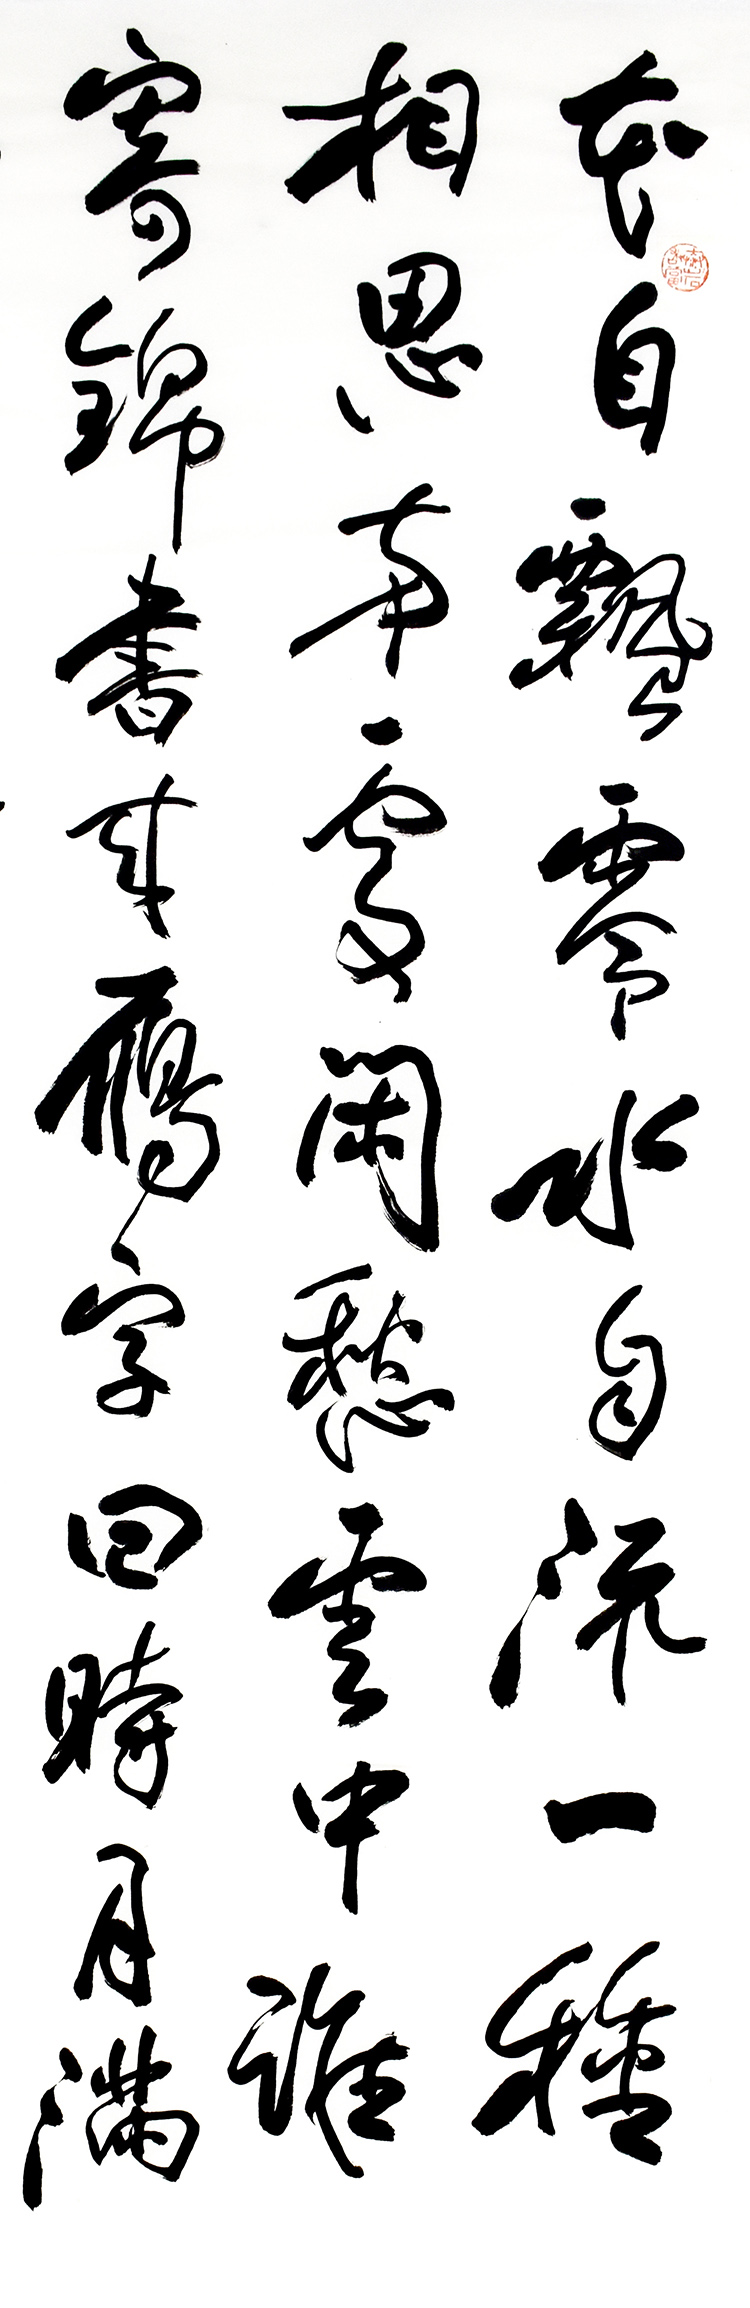 花自飄零水自流一種
相思兩處閑愁雲中誰
寄錦書来雁字回時月滿